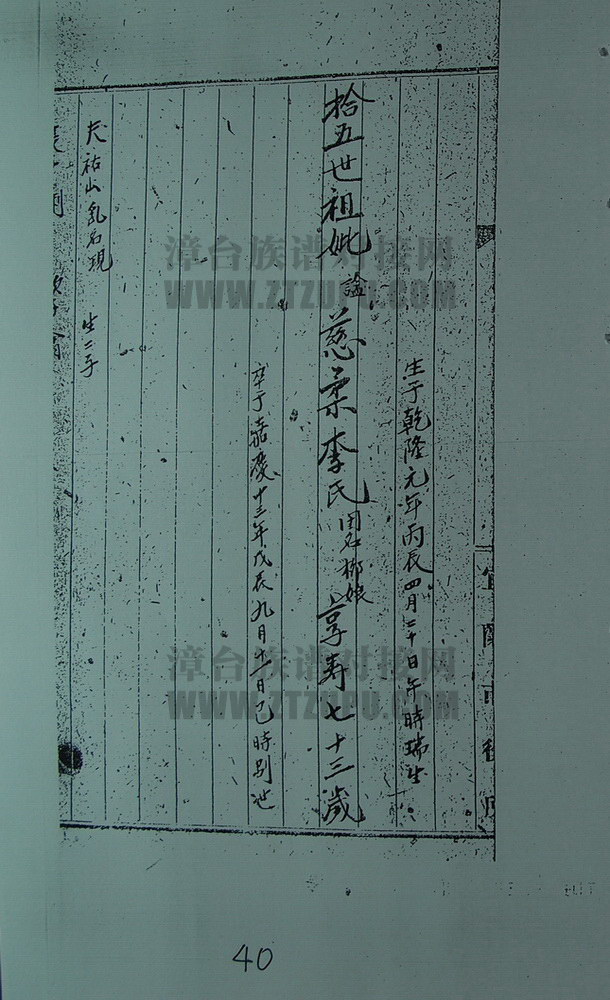 生于乾隆元年丙辰四月二十日午時瑞生
拾五世祖妣諡慈柔李氏閨名梛娘享寿七十三歲
卒于嘉慶十三年戊辰九月十一日巳時別世
長祐山乳名現 生二子
漳台族谱对接网
WWW.ZTZUPU.COM
漳台族谱对接网
WWW.ZTZUPU.COM
40